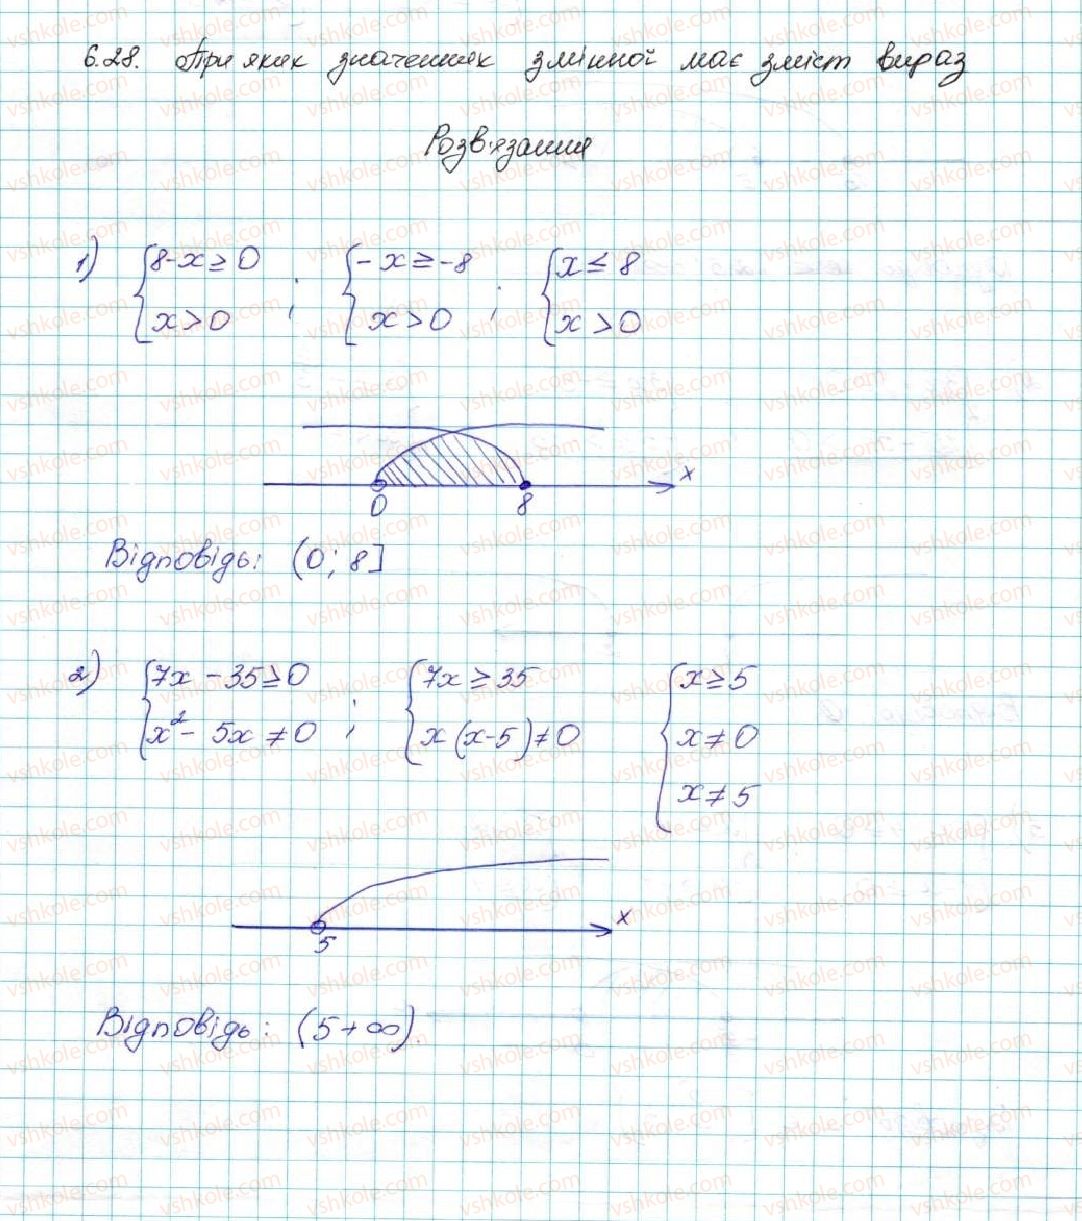 6.28. При яких значеннях змінної має зміст вираз
Розв'язання
1) {8-x ≥ 0 ; {-x ≥ -8 ; {x ≤ 8
x > 0 x > 0 x > 0
0 8 x
Відповідь: (0; 8]
2) {7x - 35 ≥ 0 ; {7x ≥ 35 {x ≥ 5
x² - 5x ≠ 0 x(x-5) ≠ 0 x ≠ 0
x ≠ 5
5 x
Відповідь: (5 + ∞).
vshkole.com